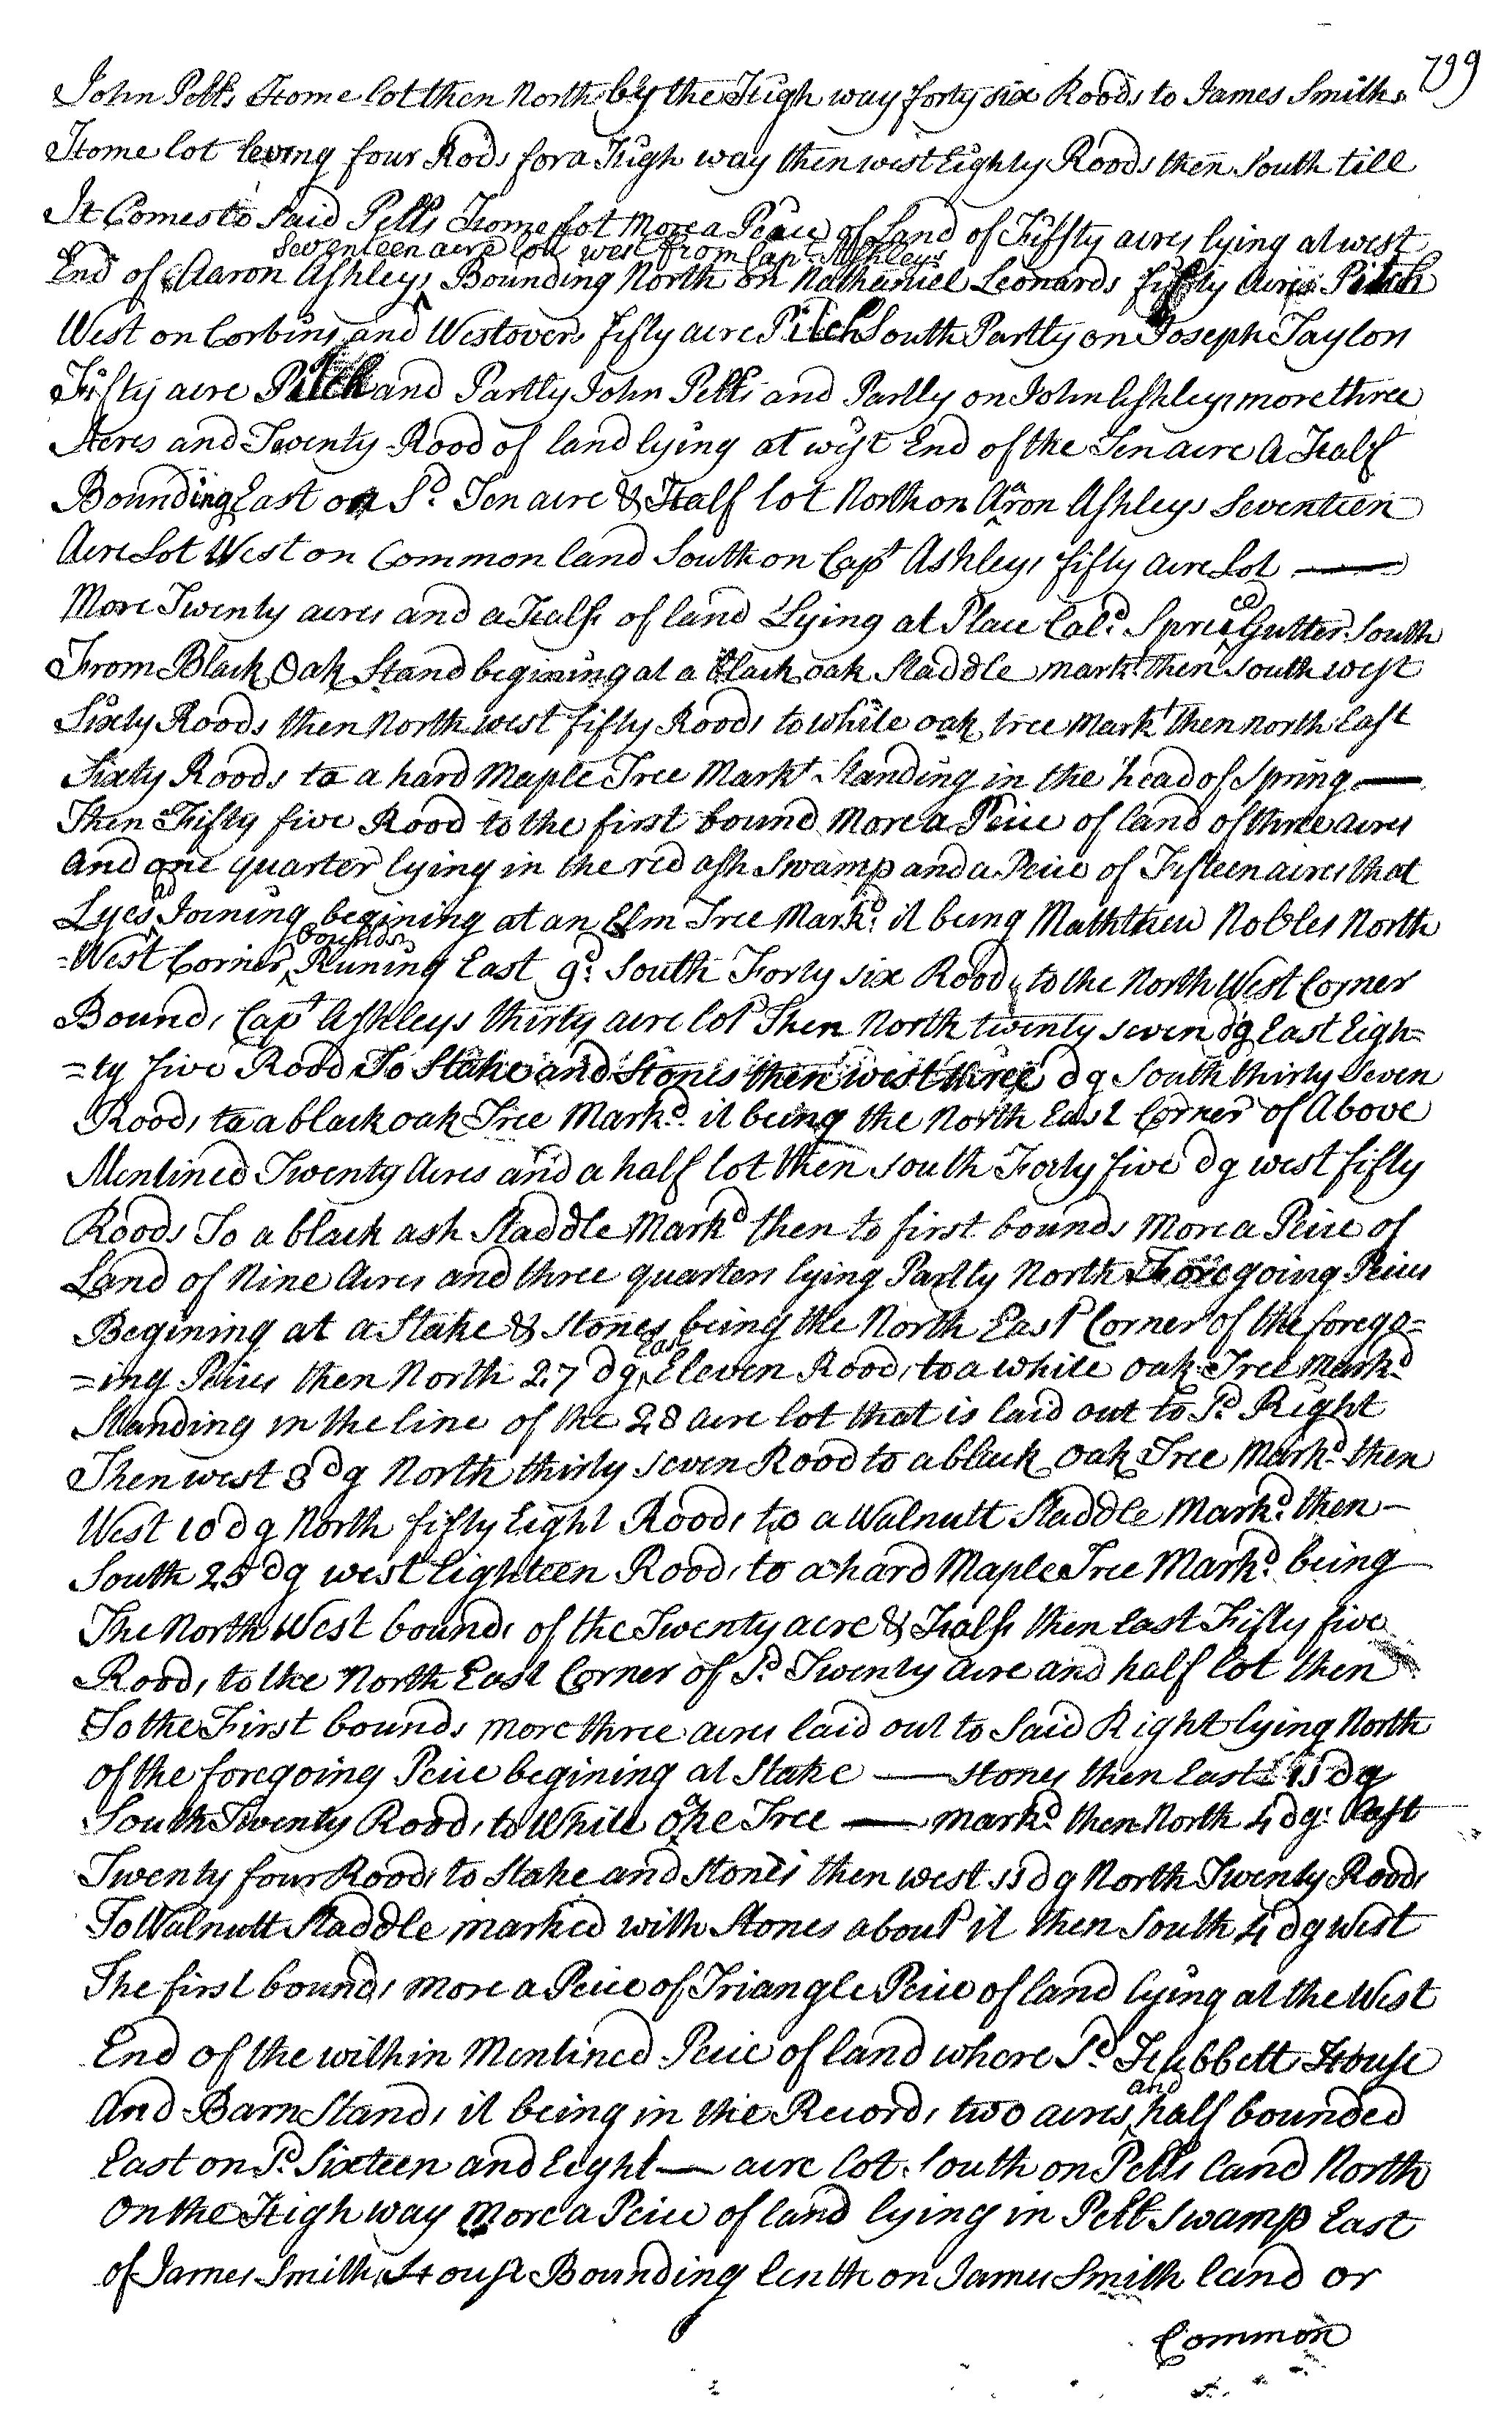 799
John Pells Home lot then North by the High way forty six Roods to James Smiths
Home lot leving four Rods for a High way then west Eighty Roods then South till
It Comes to Said Pells Home lot More a Peice of Land of Fiffty acres lying at west
Seventeen acre lott west from Capt Ashleys
End of Aaron Ashleys Bounding North on Nathaniel Leonards fifty Acres Pitch
West on Corbins and Westovers fifty acre Pitch South Partly on Joseph Taylor
Fifty acre Pitch and Partly John Pells and Partly on John Ashleys more three
Acres and Twenty Rood of land lying at wist End of the Ten acre A Half
Bounding East on Sd Ten acre & Half lot North on Aron Ashleys Seventeen
Acre Lot West on Common land South on Capt Ashleys fifty acre Lot —
More Twenty acres and a Half of land Lying at Place Cald Spruce Gutter South
From Black Oak Stand begining at a black oak Staddle markt then South west
Sixty Roods then North west fifty Roods to white oak tree Markt then north East
Sixty Roods to a hard Maple Tree Markt Standing in the head of Spring —
Then Fifty five Rood to the first bound More a Peice of land of three acres
And one quarter lying in the red ash Swamp and a Peice of Fifteen acres that
Lyes ad Joining begining at an Elm Tree Markd it being Matthew Nobles North
=West Corner bounds Runing East 9d South Forty six Roods to the North West Corner
Bounds Capt Ashleys thirty acre lot Then North twenty seven dg East Eigh=
=ty five Rood To Stake and Stones then west three dg South thirty Seven
Roods to a black oak Tree Markd it being the North East Corner of Above
Mentined Twenty Acres and a half lot then South Forty five dg west fifty
Roods To a black ash Staddle Markd then to first bounds More a Peice of
Land of Nine Acres and three quarters lying Partly North Foregoing Peices
Begining at a Stake & Stones being the North East Corner of the forego=
=ing Peices then North 27 dg East Eleven Roods to a white oak Tree Markd
Standing in the line of the 28 acre lot that is laid out to Sd Right
Then west 3 dg North thirty seven Rood to a black oak Tree Markd then
West 10 dg North fifty Eight Roods to a Walnutt Staddle Markd then —
South 25 dg west Eighteen Roods to a hard Maple Tree Markd being
The North West bounds of the Twenty acre & Half then East Fifty five
Roods to the North East Corner of Sd Twenty acre and half lot then
To the First bounds more three acres laid out to Said Right lying North
of the foregoing Peice begining at Stake — stones then East 15 dg
South Twenty Roods to White oke Tree — markd then North 4 dg: East
Twenty four Roods to Stake and Stones then west 15 dg North Twenty Roods
To Walnutt Staddle marked with Stones about it then South 4 dg west
The first bounds more a Peice of Triangle Peice of land lying at the West
End of the within Mentined Peice of land where Sd Hubbett House
And Barn Stands it being in the Records two acres and half bounded
East on Sd Sixteen and Eight — acre lot South on Pells land North
On the High way More a Peice of land lying in Pell Swamp East
of James Smiths House Bounding Lenth on James Smith land or
Common